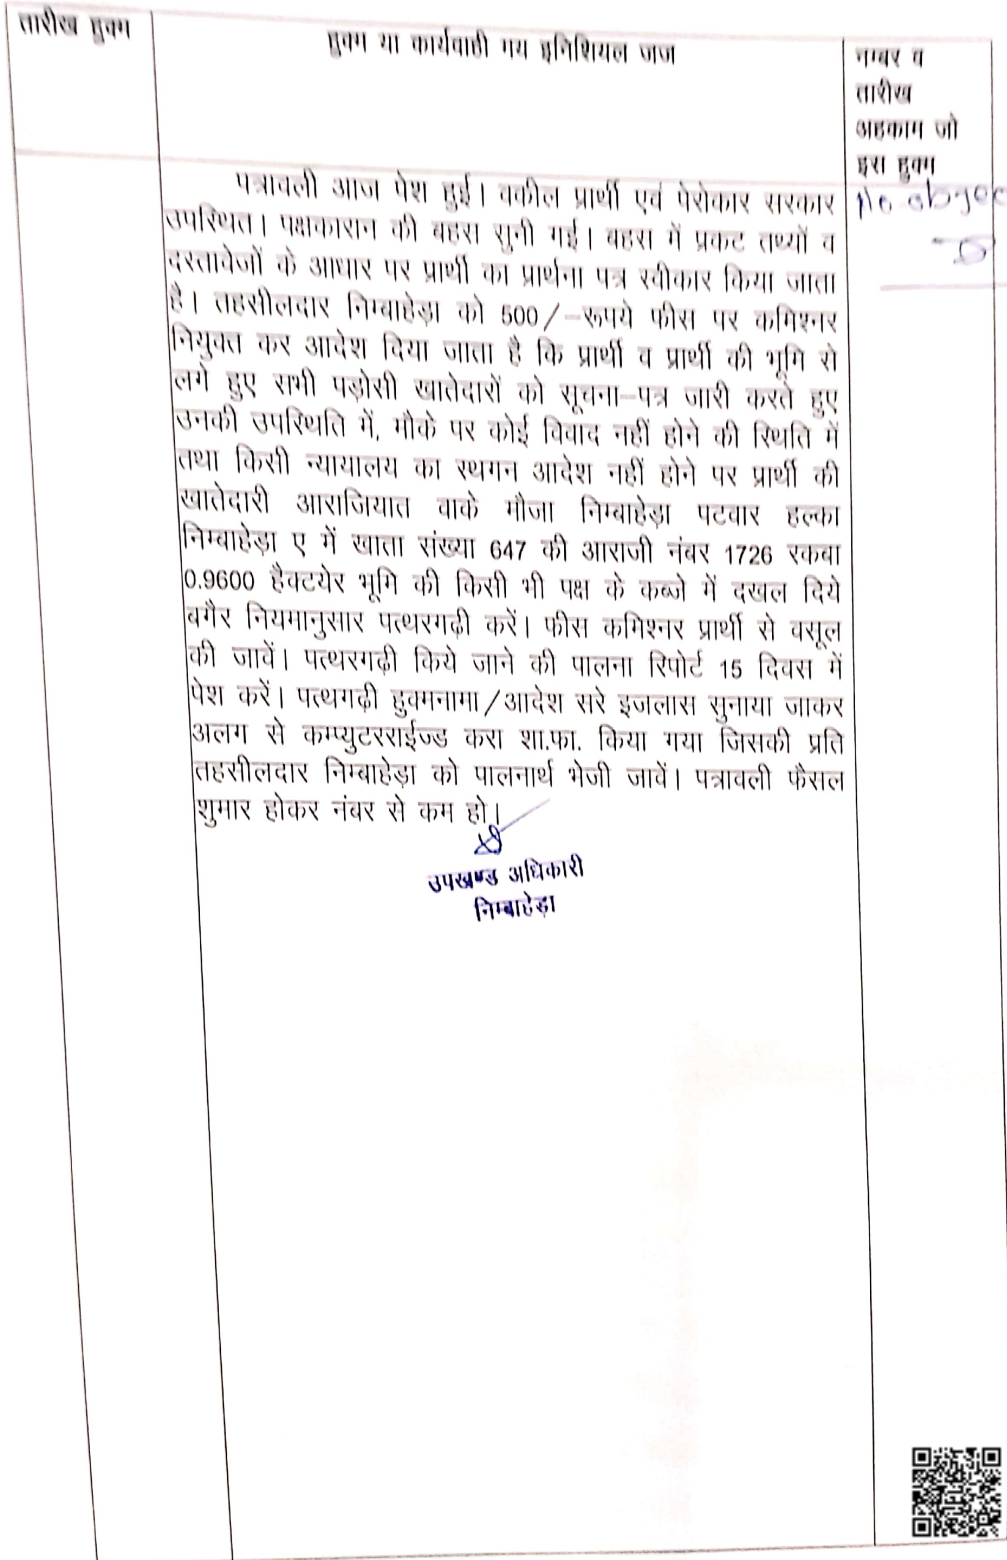 तारीख हुक्म
हुक्म या कार्यवाही मय इनिशियल जज
नम्बर व
तारीख
अहकाम जो
इस हुक्म
No objec
पत्रावली आज पेश हुई। वकील प्रार्थी एवं पेरोकार सरकार
उपस्थित। पक्षकारान की बहस सुनी गई। बहस में प्रकट तथ्यों व
दस्तावेजों के आधार पर प्रार्थी का प्रार्थना पत्र स्वीकार किया जाता
है। तहसीलदार निम्बाहेड़ा को 500/–रूपये फीस पर कमिश्नर
नियुक्त कर आदेश दिया जाता है कि प्रार्थी व प्रार्थी की भूमि से
लगे हुए सभी पड़ोसी खातेदारों को सूचना–पत्र जारी करते हुए
उनकी उपस्थिति में, मौके पर कोई विवाद नहीं होने की स्थिति में
तथा किसी न्यायालय का स्थगन आदेश नहीं होने पर प्रार्थी की
खातेदारी आराजियात वाके मौजा निम्बाहेड़ा पटवार हल्का
निम्बाहेड़ा ए में खाता संख्या 647 की आराजी नंबर 1726 रकबा
0.9600 हैक्टयेर भूमि की किसी भी पक्ष के कब्जे में दखल दिये
बगैर नियमानुसार पत्थरगढ़ी करें। फीस कमिश्नर प्रार्थी से वसूल
की जावें। पत्थरगढ़ी किये जाने की पालना रिपोर्ट 15 दिवस में
पेश करें। पत्थगढ़ी हुक्मनामा/आदेश सरे इजलास सुनाया जाकर
अलग से कम्प्युटरराईज्ड करा शा.फा. किया गया जिसकी प्रति
तहसीलदार निम्बाहेड़ा को पालनार्थ भेजी जावें। पत्रावली फैसल
शुमार होकर नंबर से कम हो।
उपखण्ड अधिकारी
निम्बाहेड़ा